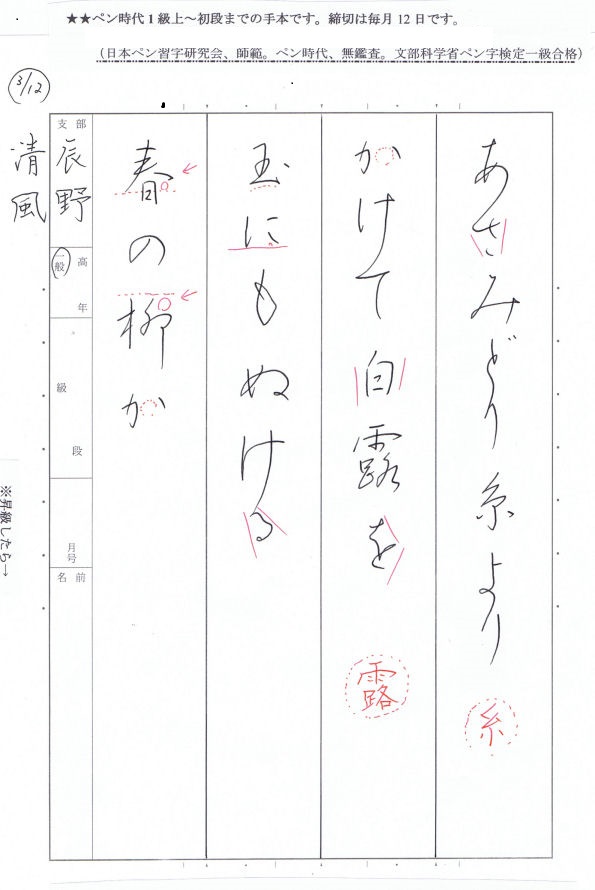 ★★ペン時代１級上～初段までの手本です。締切は毎月 12 日です。
（日本ペン習字研究会、師範。ペン時代、無鑑査。文部科学省ペン字検定一級合格）
3/12
あさみどり糸より
糸
かけて白露を
露
玉にもぬける
春の柳か
支部
辰野
高年
一般
級
段
月号
名前
清風
※昇級したら→